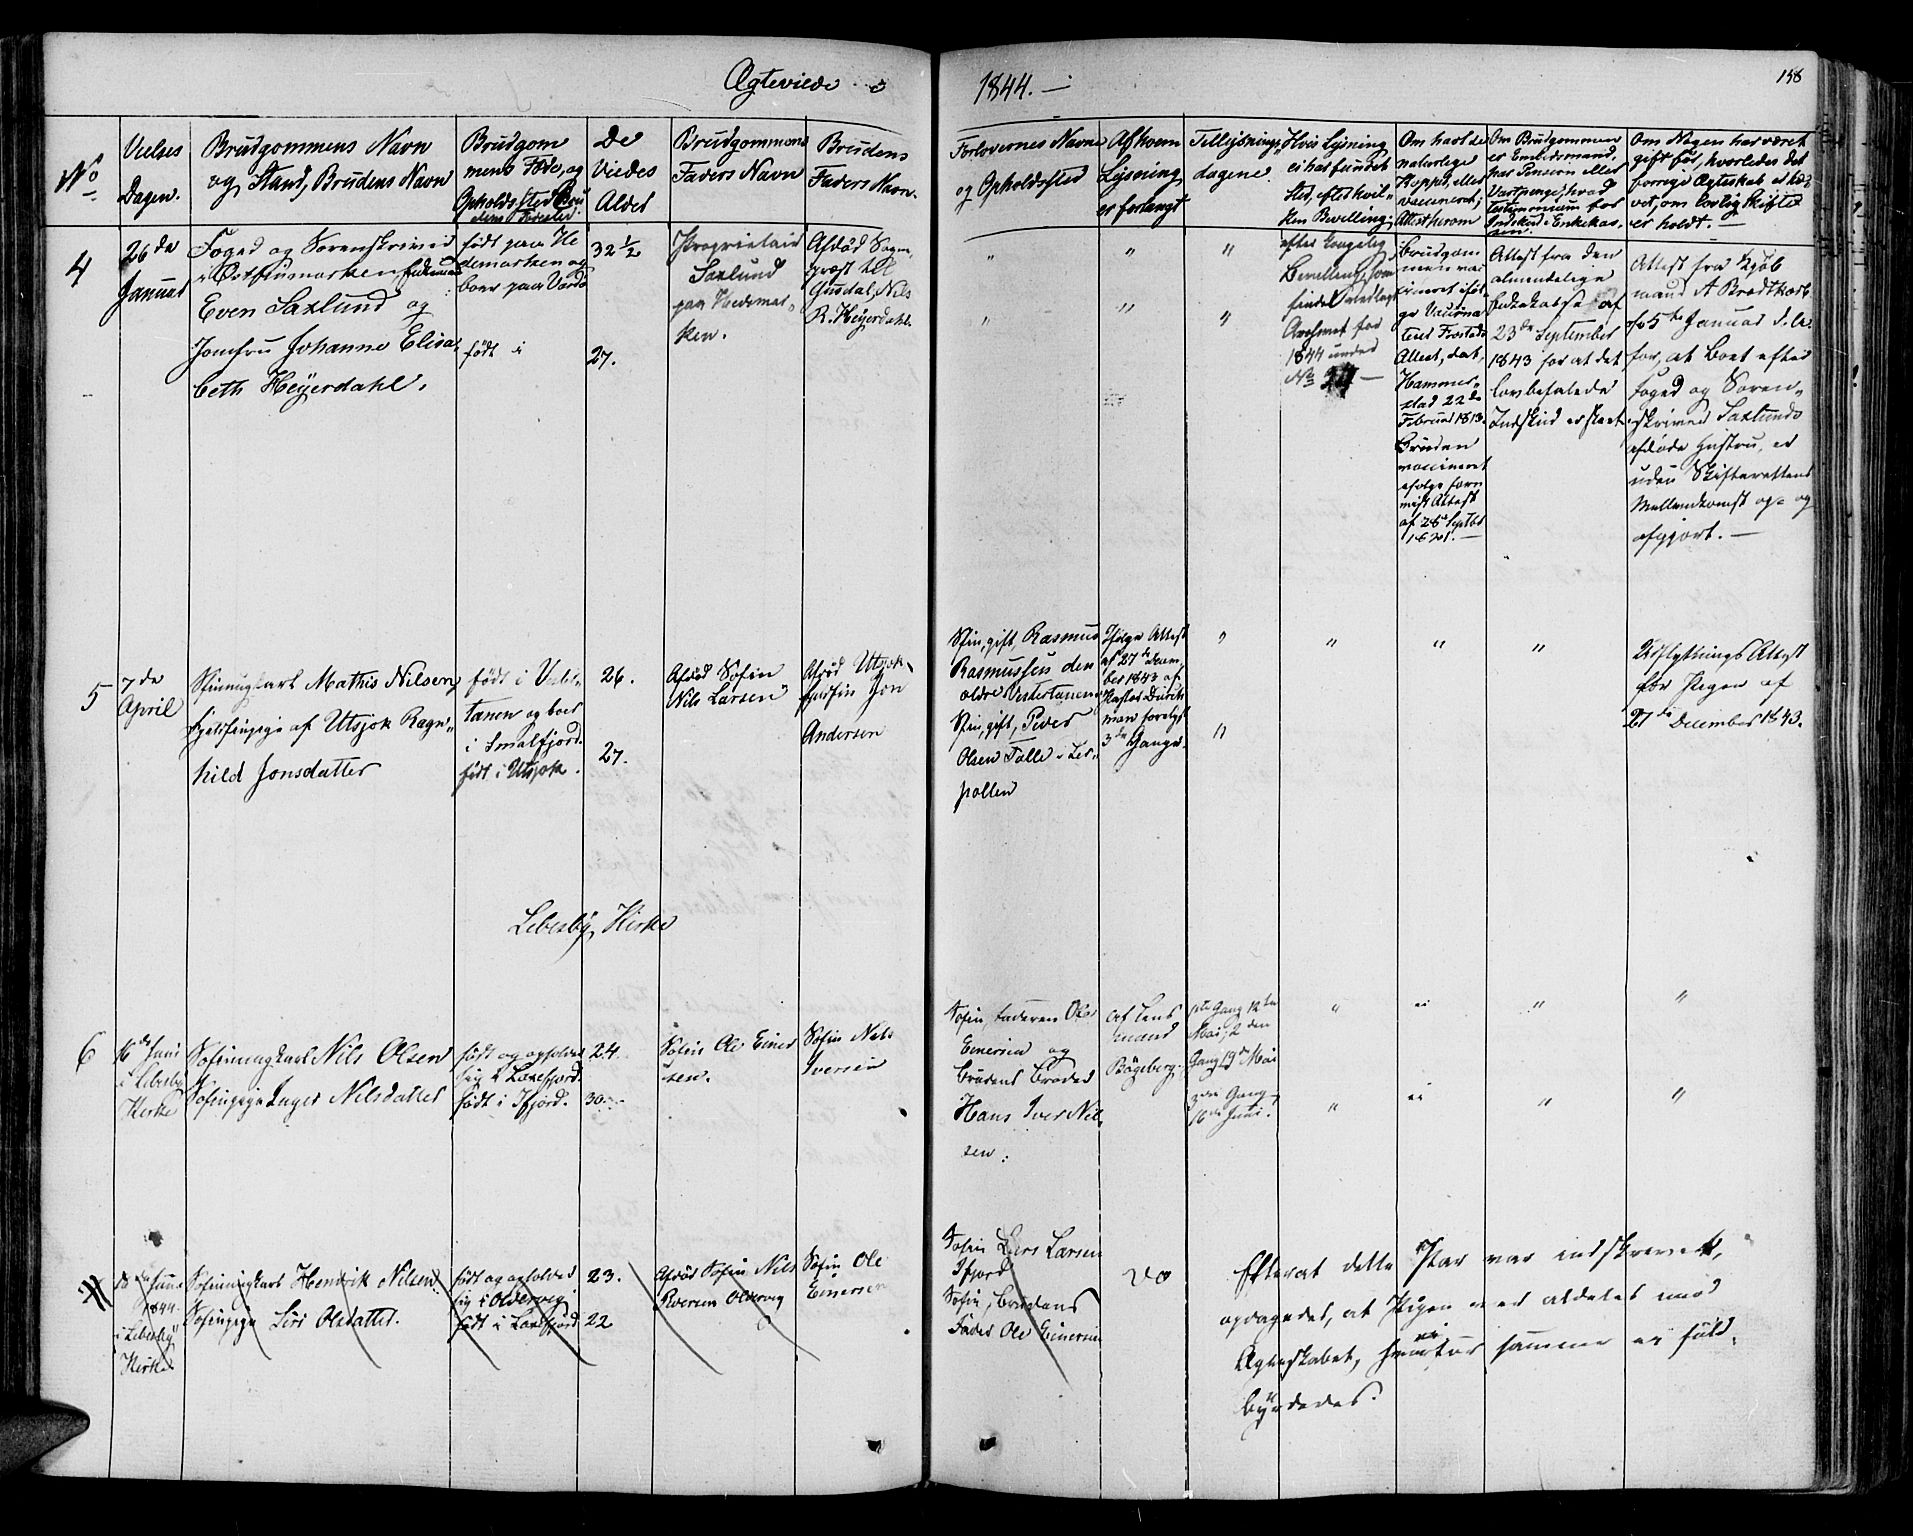 Ægteviede
1844.
158
No
Vielses
Dagen.
Brudgommens Navn
og Stand, Brudens Navn
Brudgom
mens Føde, og
Opholdssted Bru
dens Fødested.
De
Viedes
Alder
Brudgommens
Faders Navn
Brudens
Faders Navn.
Forlovernes Navne
og Opholdssted
Af hvem
Lysning
er forlangt
Tillysnings
dagene.
Hvis Lysning
ei har fundet
Sted, efter hvil-
ken Bevilling.
Om havt de
naturlige
Kopper, eller
vaccineret;
Attest herom
Om Brudgommen
er Embedsmand,
har Pension eller
Vartpenge, hvad
Testimonium for
Indskud i Enkekas-
sen.
Om Nogen har været
gift før, hvorledes det
forrige Ægteskab er hæ-
vet, om lovlig Skifte
er holdt.
4
26de
Januar
Foged og Sorenskriver
i Østfinmarken Enkemand
Even Saxlund og
Jomfru Johanne Elisa-
beth Heyerdahl.
født paa He
demarken og
boer paa Vadsø
født i
32 1/2
27.
Proprietair
Saxlund
paa Hedemar-
ken.
Afdød Sogne
præst til
Gusdal, Nils
R. Heyerdahl.
"
"
"
"
"
"
efter Kongelig
Bevilling, som
findes vedlagt
Archivet for
1844 under
No
Brudgom
men vac
cineret iføl-
ge
Attest, dat,
Hammer-
stad 22de
Februar 1813.
Bruden
vaccineret
ifølge
Attest
af 28de Septbr
1821.
Attest fra den
almindelige
Enkekasse af
23de September
1843 for at det
lovbefalede
Indskud er skeet
Attest fra Kjøb
mand A Brodtkorb
af 5te Januar d. A.
for, at Boet efter
Foged og Soren-
skriver Saxlunds
afdøde Hustru, er
uden Skifterettens
Mellemkomst op- og
afgjort.
5
7de
April
Mathis Nilsen
af Utsjok Ragn-
hild Jonsdatter
født i
Tanen og boer
i Smalfjord.
født i Utsjok.
26.
27.
Afdød Søfin
Nils Larsen
Afdød Utsjok
Jon
Andersen
gift, Rasmus
Rasmussen den
ældre Vestertanen
gift, Peder
Olsen Falle i Lei-
pollen
Ifølge Attest
af 27de Decem-
ber 1843 af
Pastor
man forelyst
3de Gange.
"
"
"
"
"
Udflytnings Attest
for Pigen af
27de December 1843.
Lebesby Kirke
6
16de Juni
i Lebesby
Kirke
Søfinungkarl Nils Olsen
Søfinpige Inger Nilsdatter
født og opholder
sig i Laxefjord.
født i Ifjord.
24.
30.
Søfin Ole Einer
sen.
Søfin Nils
Iversen
Søfin, Faderen Ole
Einersen og
Brudens Broder
Hans Iver Nil-
sen.
Af Lens
mand
Bøgeberg.
1ste Gang 12te
Mai, 2den
Gang 19de Mai
3die Gang
16de Juni.
"
"
"
"
"
"
"
"
18de Juni
1844.
i Lebesby
Kirke
Søfinungkarl Hendrik Nilsen
Søfinpige Siri Olsdatter.
født og opholder
sig i Oldervig
født i Laxefjord
23.
22
Afdød Søfin Nils
Iversen Oldervig
Søfin Ole
Einersen
Søfin Lars Larsen
Ifjord
Søfin, Brudens
Fader Ole Einersen
do
Efterat dette Par var indskrevet,
opdagedes, at Pigen var aldeles mod
Ægteskabet, hvorfor samme ei fuld-
byrdedes.